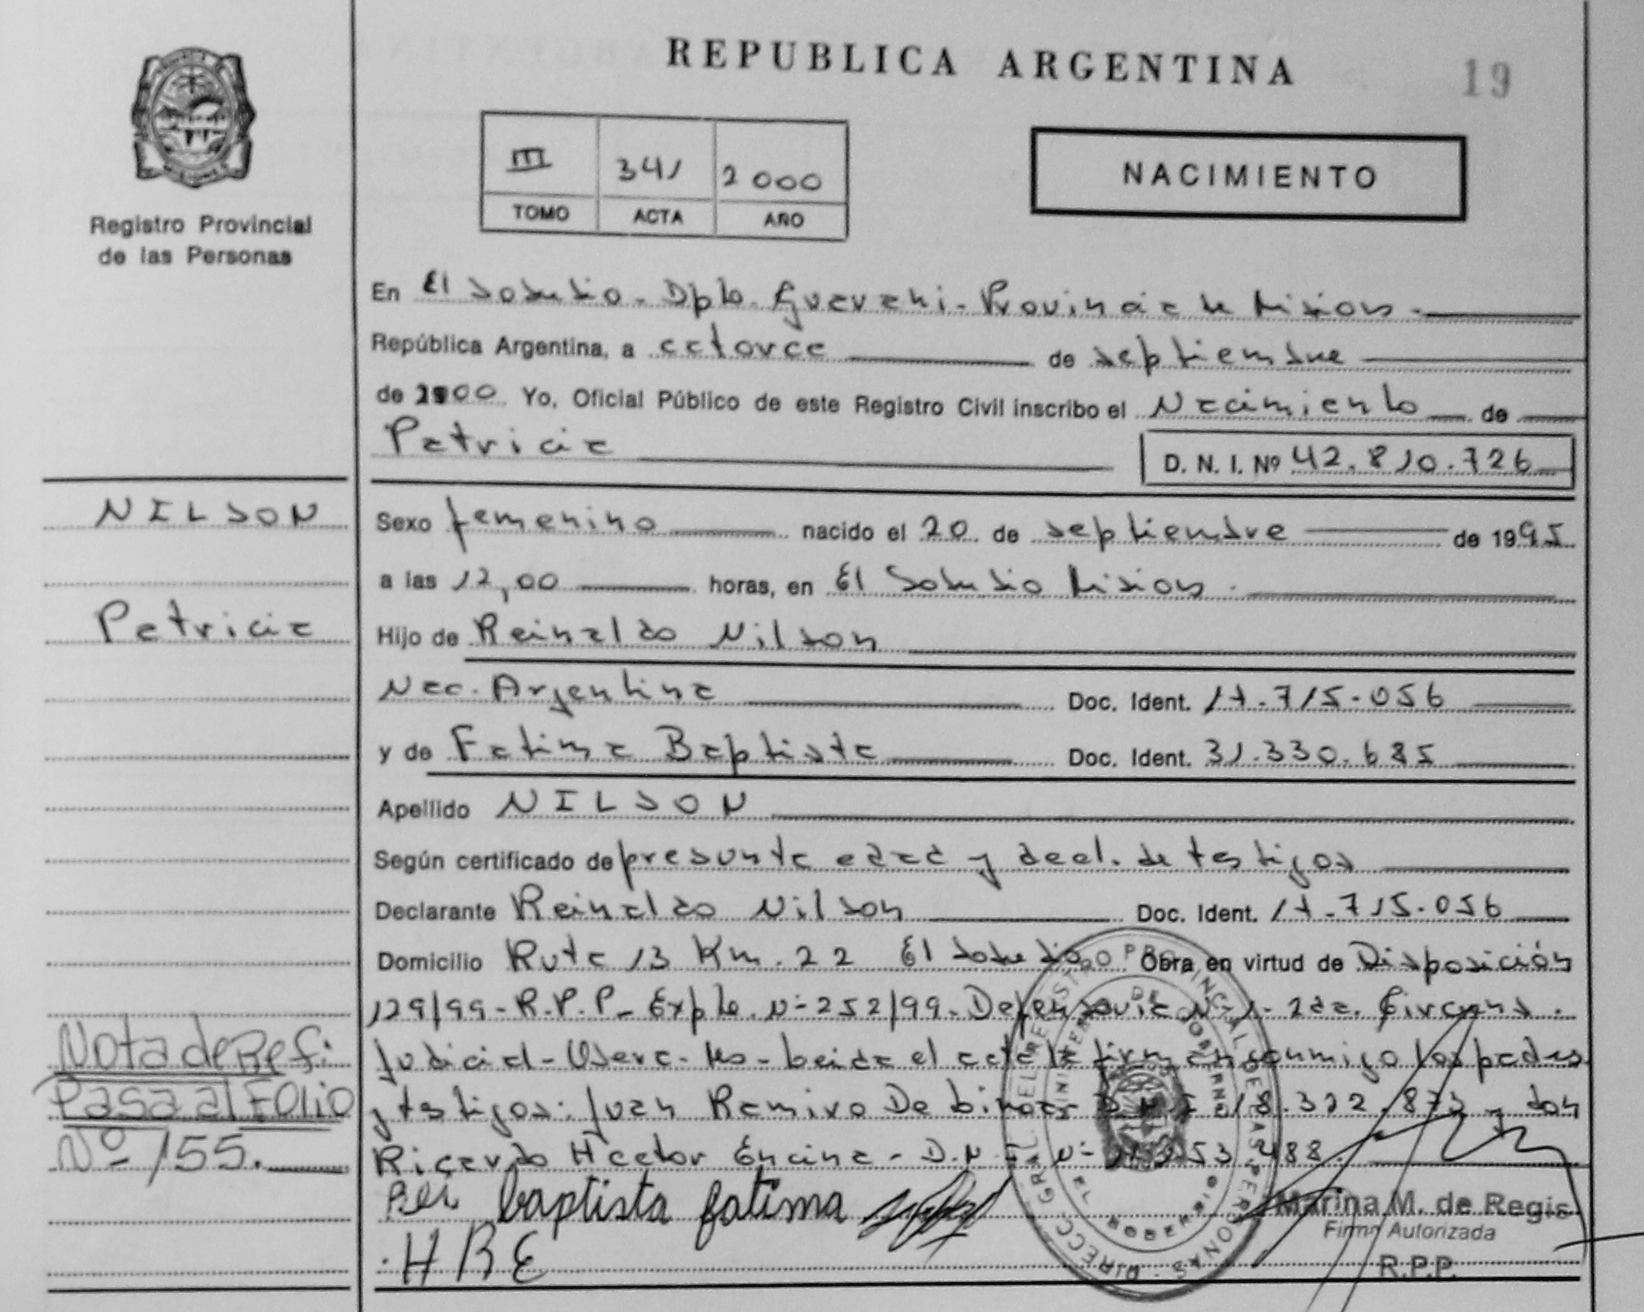 REPUBLICA ARGENTINA
19
III 341 2000
TOMO ACTA AÑO
NACIMIENTO
Registro Provincial
de las Personas
En El Soberbio - Dpto. Guarani - Provincia de Misiones.
República Argentina, a catorce de septiembre
de 2000 Yo, Oficial Público de este Registro Civil inscribo el Nacimiento de
Patricia
D. N. I. Nº 42.810.726
NILSON
Patricia
Sexo femenino nacido el 20 de septiembre de 1995
a las 12,00 horas, en El Soberbio Misiones.
Hijo de Reinaldo Nilson
Nac. Argentina Doc. Ident. 17.715.056
y de Fatima Baptista Doc. Ident. 31.330.685
Apellido NILSON
Según certificado de presunta edad y decl. de testigos
Declarante Reinaldo Nilson Doc. Ident. 17.715.056
Domicilio Ruta 13 Km. 22 El Soberbio Obra en virtud de Disposición
129/99 - R.P.P - Expte. Nº 252/99 - Defensoria Nº 1 - 2da. Circuns.
Judicial - Obera - Ms - Leida el acta la firman conmigo los padres
y testigos: Juan Ramiro De D.N.I. 18.322.873 y don
Ricardo Hector Encina - D.N.I. Nº
Nota de Ref:
Pasa al Folio
Nº 155.
baptista fatima
HRE
Marina M. de Regis
Firma Autorizada
R.P.P.